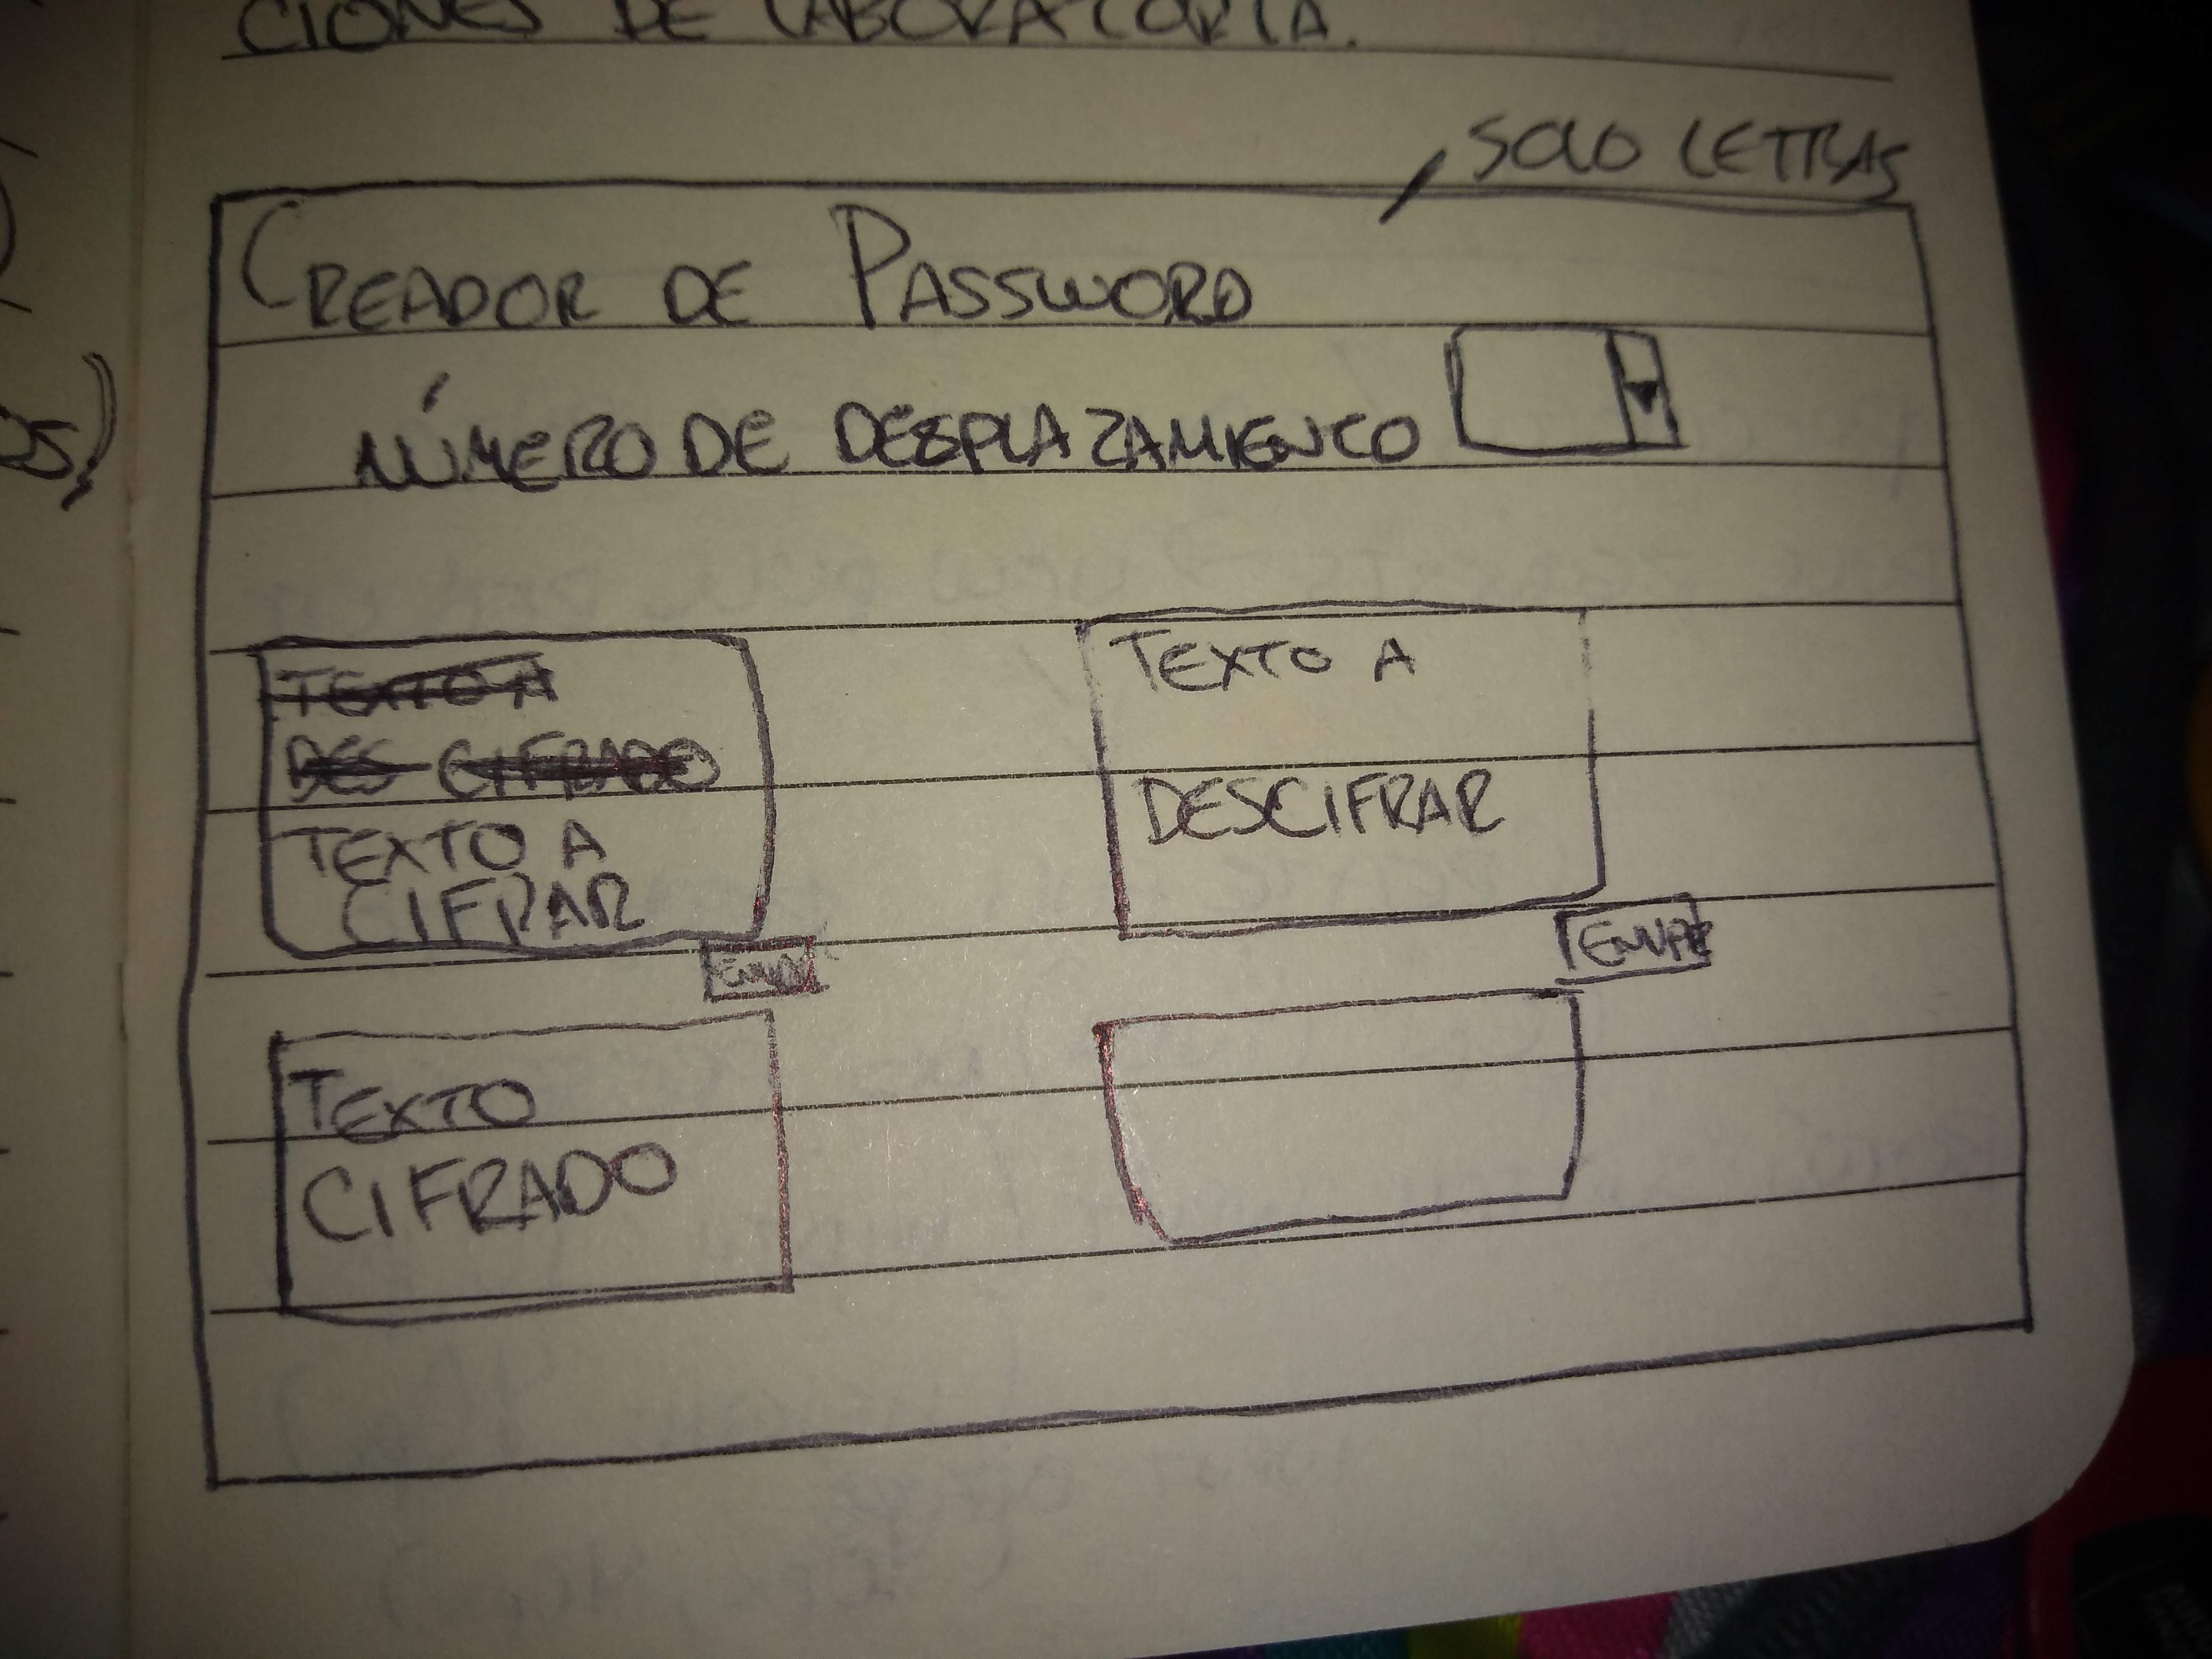 CIONES DE LABORATORIA.
, SOLO LETRAS
CREADOR DE PASSWORD
NÚMERO DE DESPLAZAMIENTO
TEXTO A
DES CIFRADO
TEXTO A
CIFRAR
TEXTO A
DESCIFRAR
TEXTO
CIFRADO